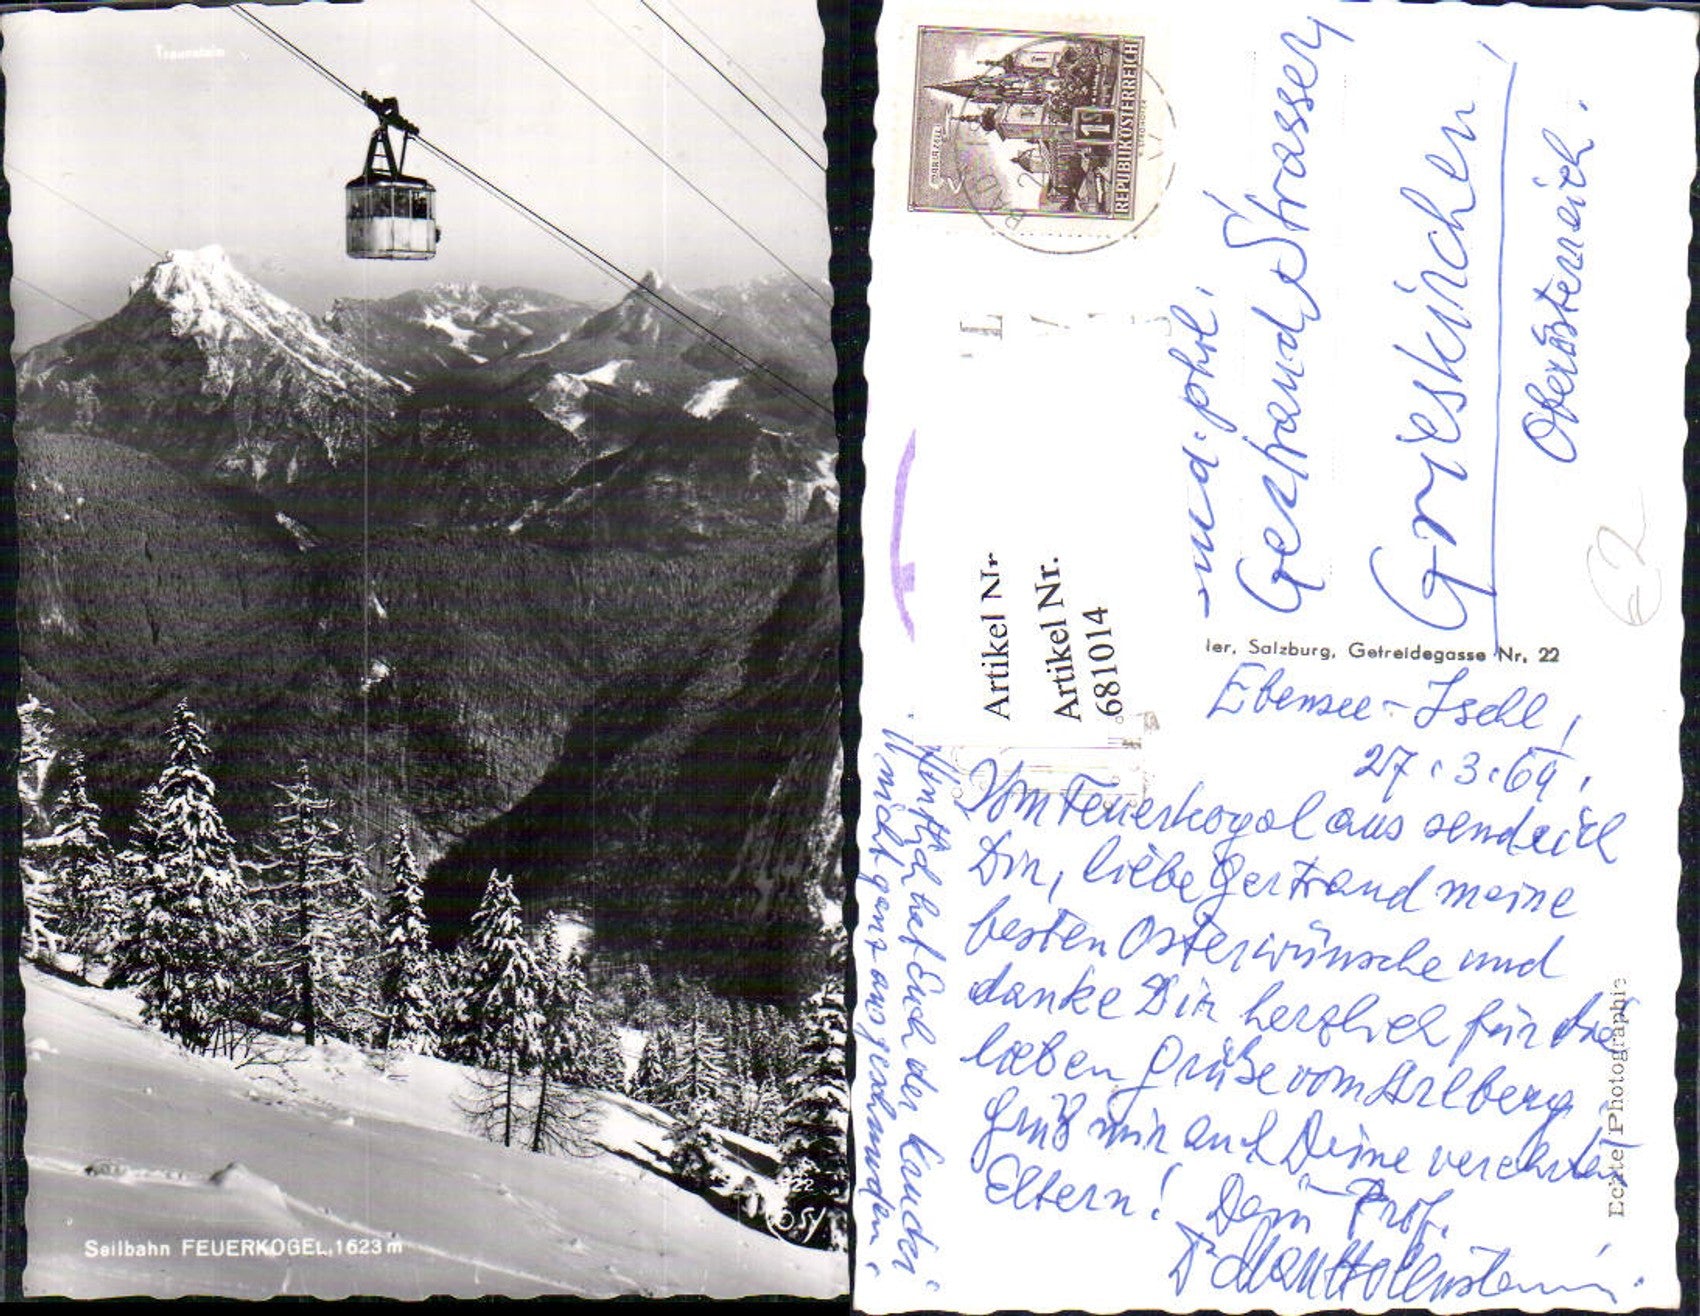 Traunstein
Seilbahn FEUERKOGEL, 1623 m
22
REPUBLIK ÖSTERREICH
1S
MARIAZELL
cand. phil.
Gertraud Strasser
Grieskirchen
Oberösterreich.
€2
Artikel Nr
Artikel Nr.
681014
ler, Salzburg, Getreidegasse Nr. 22
Echte Photographie
Ebensee - Ischl,
27.3.64.
Vom Feuerkogel aus send ich
Dir, liebe Gertraud meine
besten Osterwünsche und
danke Dir herzlich für die
lieben Grüße vom Arlberg
Grüß mir auch Deine verehrten
Eltern! Dein Prof.
Hoffentlich hat Euch der
nicht ganz